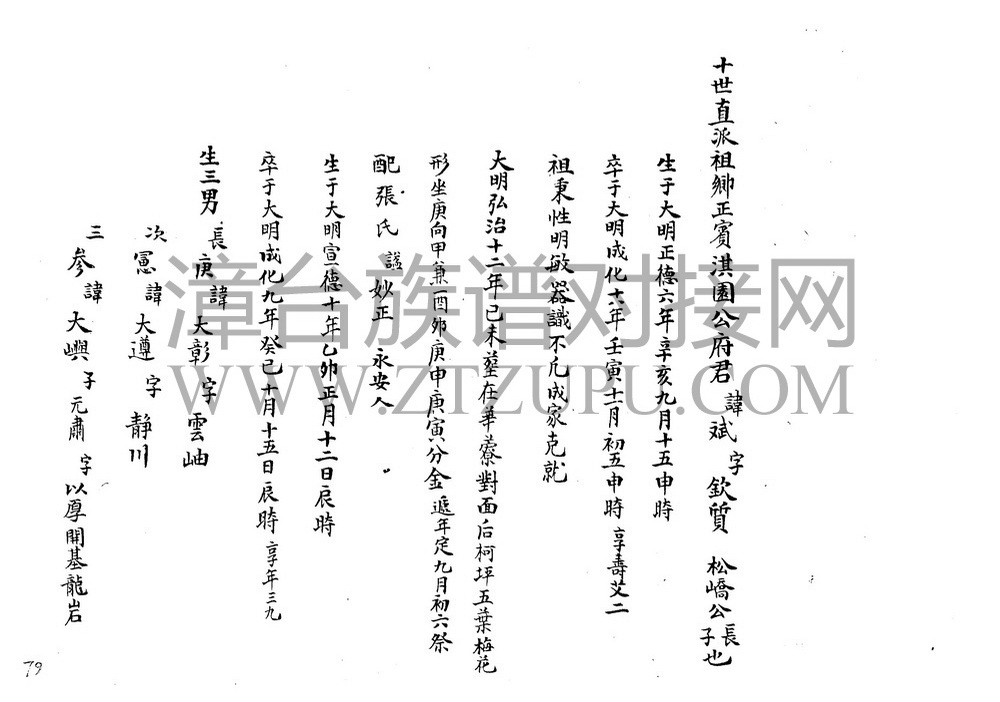 十世直派祖鄉正賓淇園公府君 諱斌 字欽質 松嶠公長子也
生于大明正德六年辛亥九月十五申時
卒于大明成化十八年壬寅十一月初五申時 享壽艾二
祖秉性明敏器識不凡成家克就
大明弘治十二年己未塟在華藔對面后柯坪五葉梅花
形坐庚向甲兼酉卯庚申庚寅分金 遞年定九月初六祭
配張氏 諡妙正 永安人
生于大明宣德十年乙卯正月十二日辰時
卒于大明成化九年癸巳十月十五日辰時 享年三九
生三男 長庚諱大彰字雲岫
次憲諱大遵字靜川
三參諱大嶼子元肅字以厚開基龍岩
79
漳台族谱对接网
WWW.ZTZUPU.COM